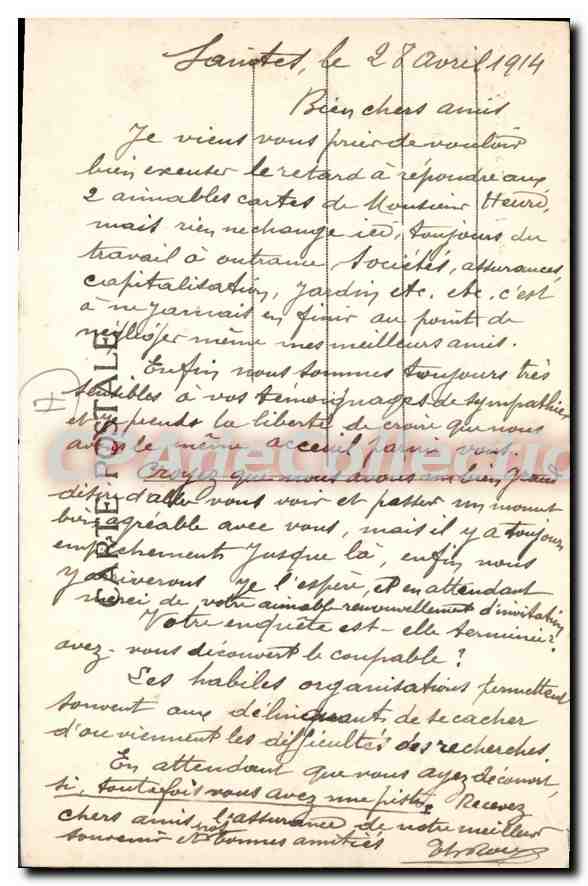 Saintes, le 28 avril 1914
Bien chers amis
Je viens vous prier de vouloir
bien excuser le retard à répondre aux
2 aimables cartes de Monsieur Henri,
mais rien ne change ici, toujours du
travail à outrance, Sociétés, assurances,
capitalisation, jardin etc. etc. c'est
à ne jamais en finir au point de
négliger même mes meilleurs amis.
Enfin nous sommes toujours très
sensibles à vos témoignages de sympathies
et je prends la liberté de croire que nous
avons le même acceuil parmi vous.
Croyez que nous avons un bien grand
désir d'aller vous voir et passer un moment
bien agréable avec vous, mais il y a toujours
empêchements jusque là, enfin nous
y arriverons je l'espère, et en attendant
merci de votre aimable renouvellement d'invitation
Votre enquête est-elle terminée?
avez-vous découvert le coupable?
Les habiles organisations permettent
souvent aux délinquants de se cacher
d'ou viennent les difficultés des recherches.
En attendant que vous ayez découvert,
si, toutefois vous avez une piste, Recevez
chers amis l'assurance de notre meilleur
souvenir et nos bonnes amitiés
CARTE POSTALE
CPArteCollection